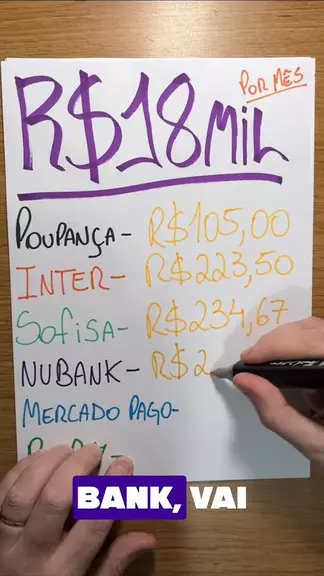 POR MÊS
R$18 MIL
POUPANÇA- R$105,00
INTER- R$223,50
SOFISA- R$234,67
NUBANK- R$2
MERCADO PAGO-
BANK, VAI